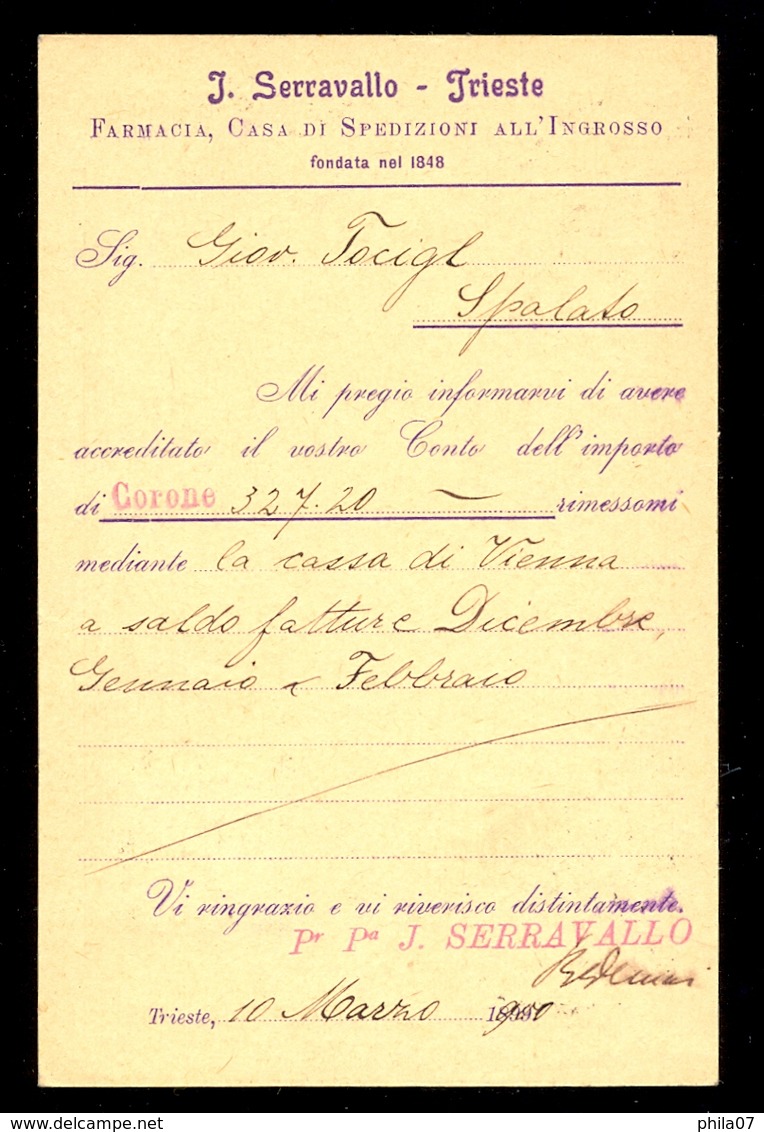 J. Serravallo - Trieste
Farmacia, Casa di Spedizioni all'Ingrosso
fondata nel 1848
Sig. Giov. Tocigl
Spalato
Mi pregio informarvi di avere
accreditato il vostro Conto dell'importo
di Corone 327.20 — rimessomi
mediante la cassa di Vienna
a saldo fatture Dicembre,
Gennaio e Febbraio
Vi ringrazio e vi riverisco distintamente.
Pr Pa J. SERRAVALLO
Trieste, 10 Marzo 1900
delcampe.net
phila07